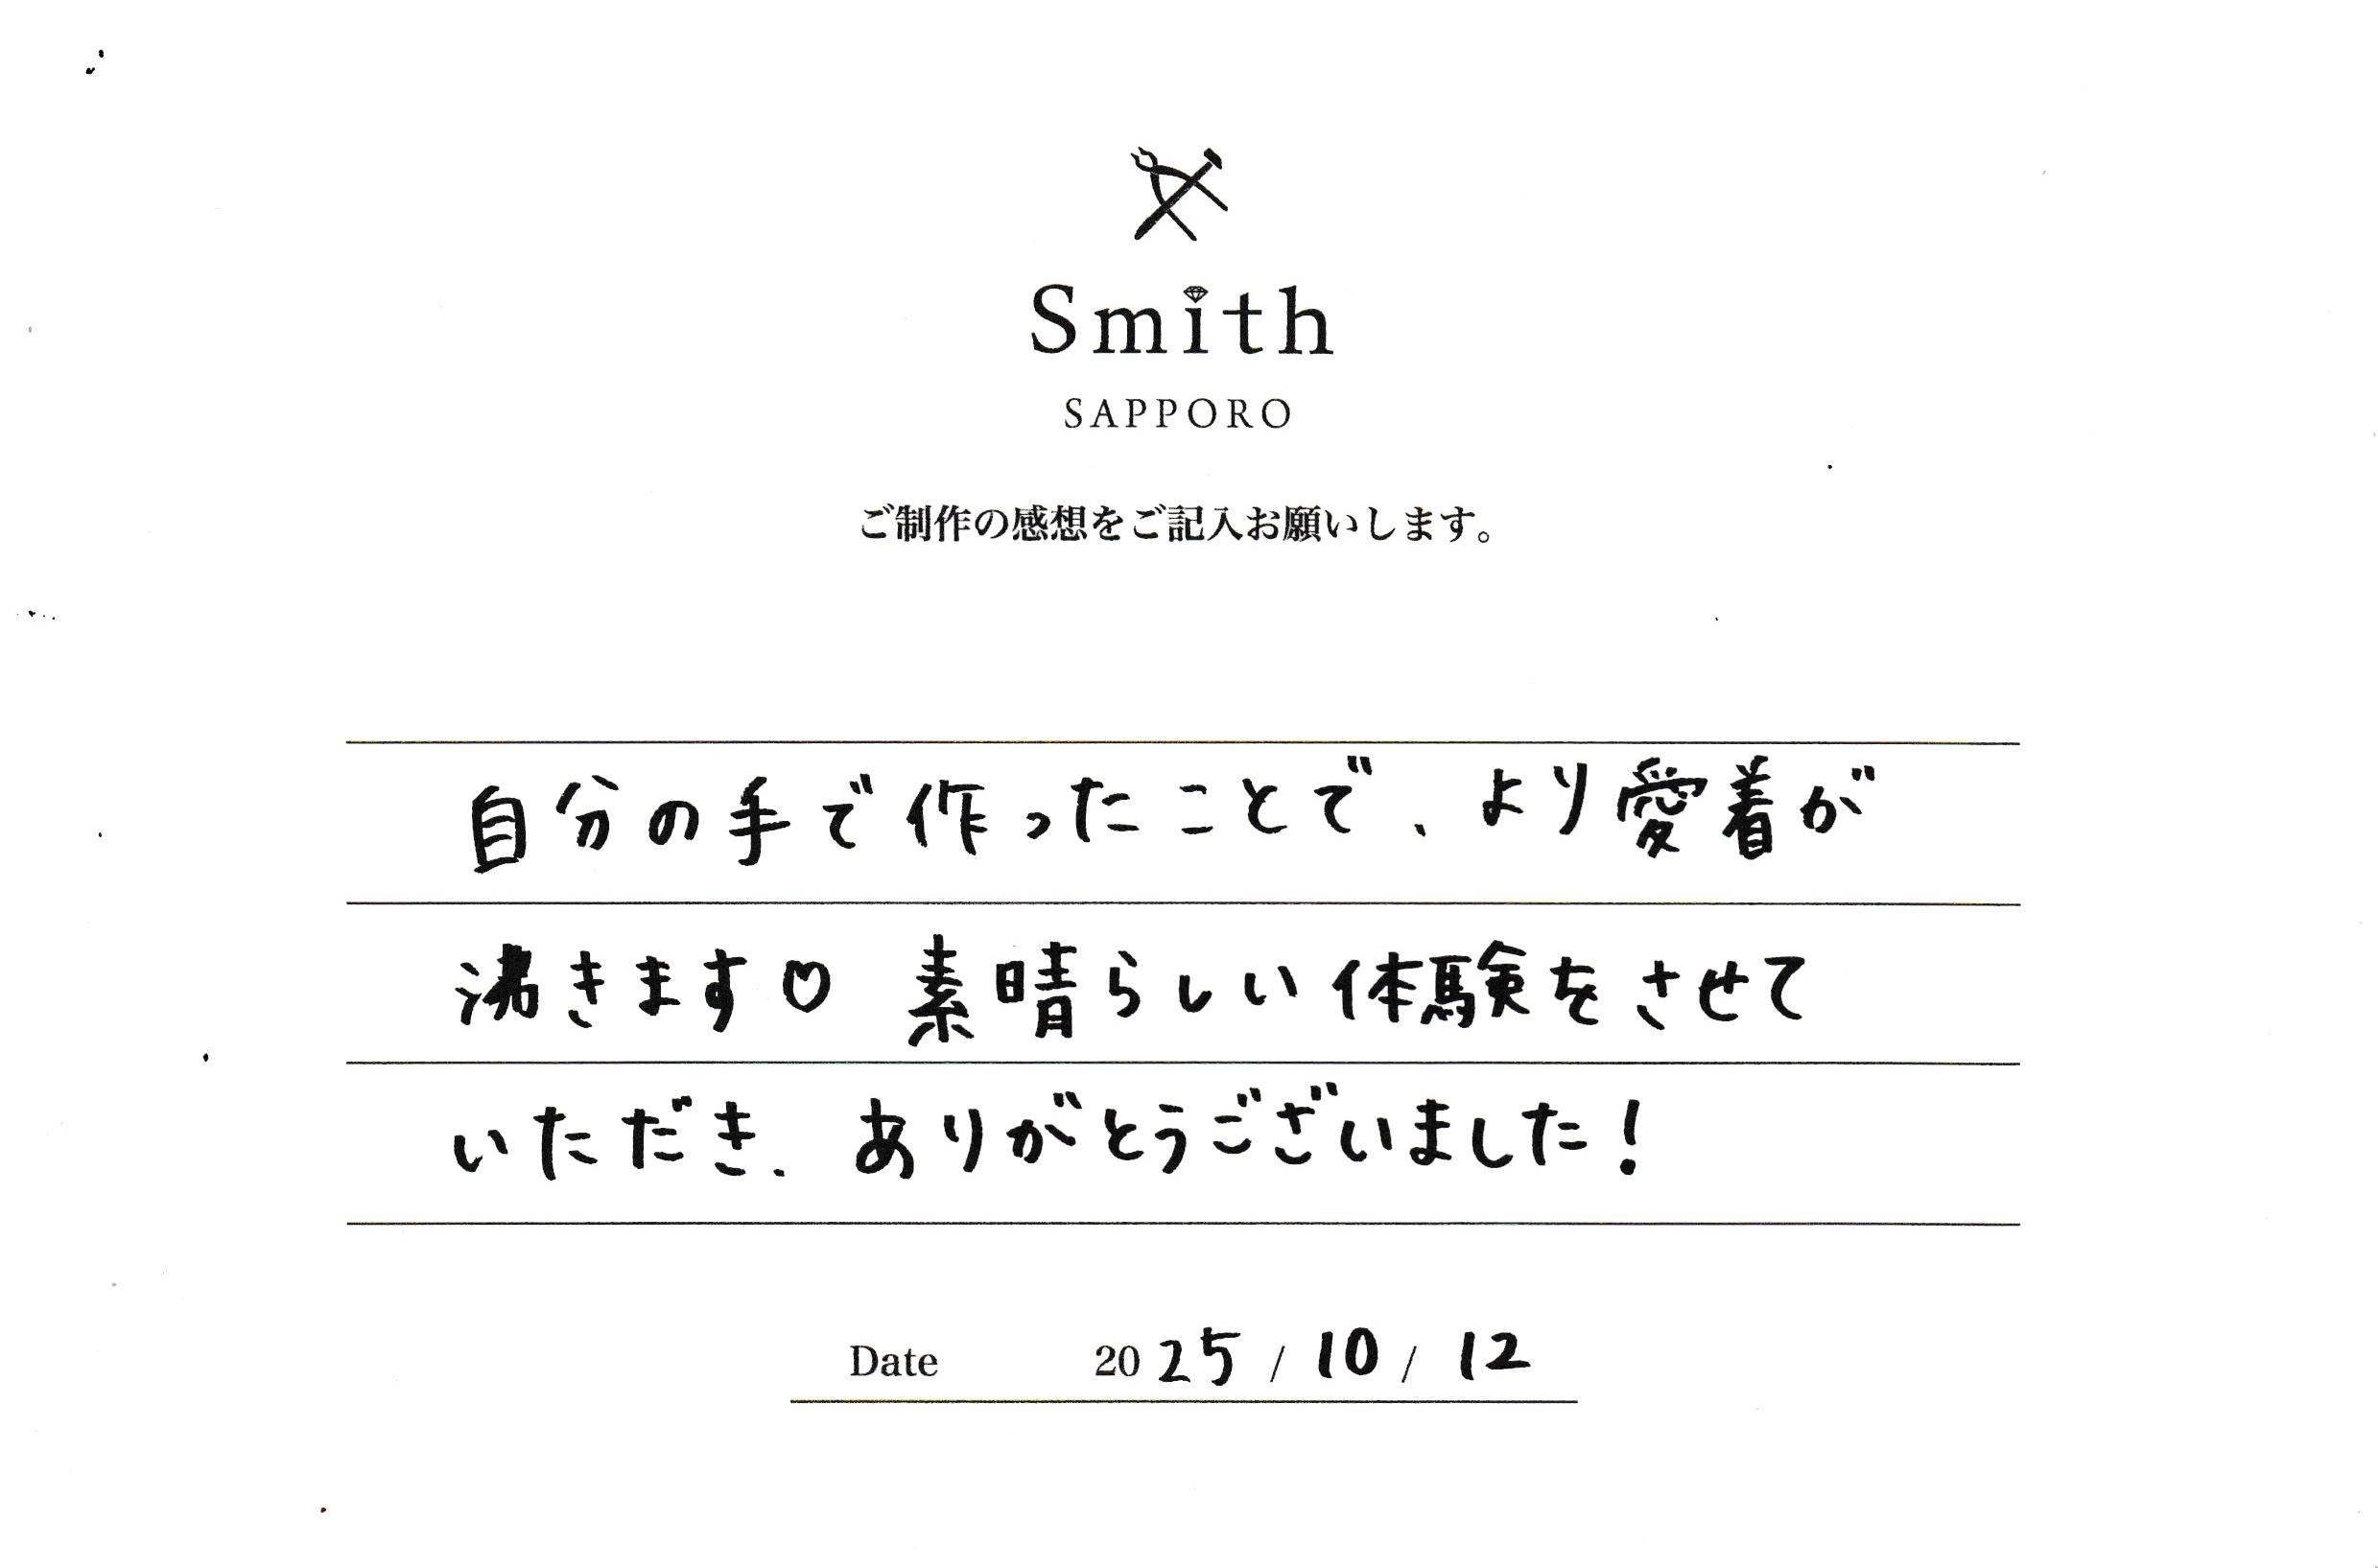 Smith
SAPPORO
ご制作の感想をご記入お願いします。
自分の手で作ったことで、より愛着が
沸きます♡ 素晴らしい体験をさせて
いただき、ありがとうございました!
Date 2025 / 10 / 12